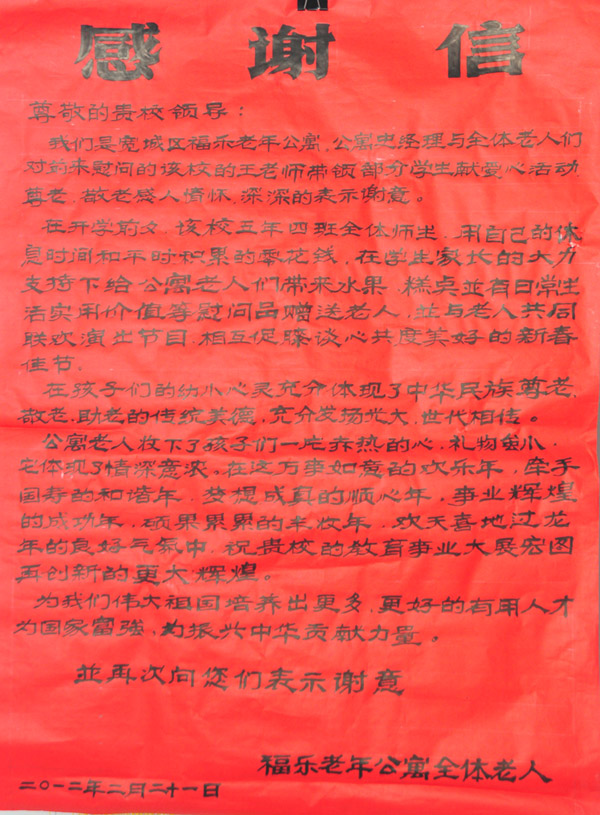 感谢信
尊敬的贵校领导：
我们是宽城区福乐老年公寓，公寓史经理与全体老人们
对前来慰问的该校的王老师带领部分学生献爱心活动
尊老、敬老感人情怀，深深的表示谢意。
在开学前夕，该校五年四班全体师生，用自己的休
息时间和平时积累的零花钱，在学生家长的大力
支持下给公寓老人们带来水果、糕点並有日常生
活实用价值等慰问品赠送老人，並与老人共同
联欢演出节目，相互促膝谈心共度美好的新春
佳节。
在孩子们的幼小心灵充分体现了中华民族尊老、
敬老、助老的传统美德，充分发扬光大，世代相传。
公寓老人收下了孩子们一片赤热的心，礼物虽小，
它体现了情深意浓。在这万事如意的欢乐年，牵手
国寿的和谐年，梦想成真的顺心年，事业辉煌
的成功年，硕果累累的丰收年，欢天喜地过龙
年的良好气氛中，祝贵校的教育事业大展宏图
再创新的更大辉煌。
为我们伟大祖国培养出更多、更好的有用人才
为国家富強、为振兴中华贡献力量。
並再次向您们表示谢意
福乐老年公寓全体老人
二〇一二年二月二十一日